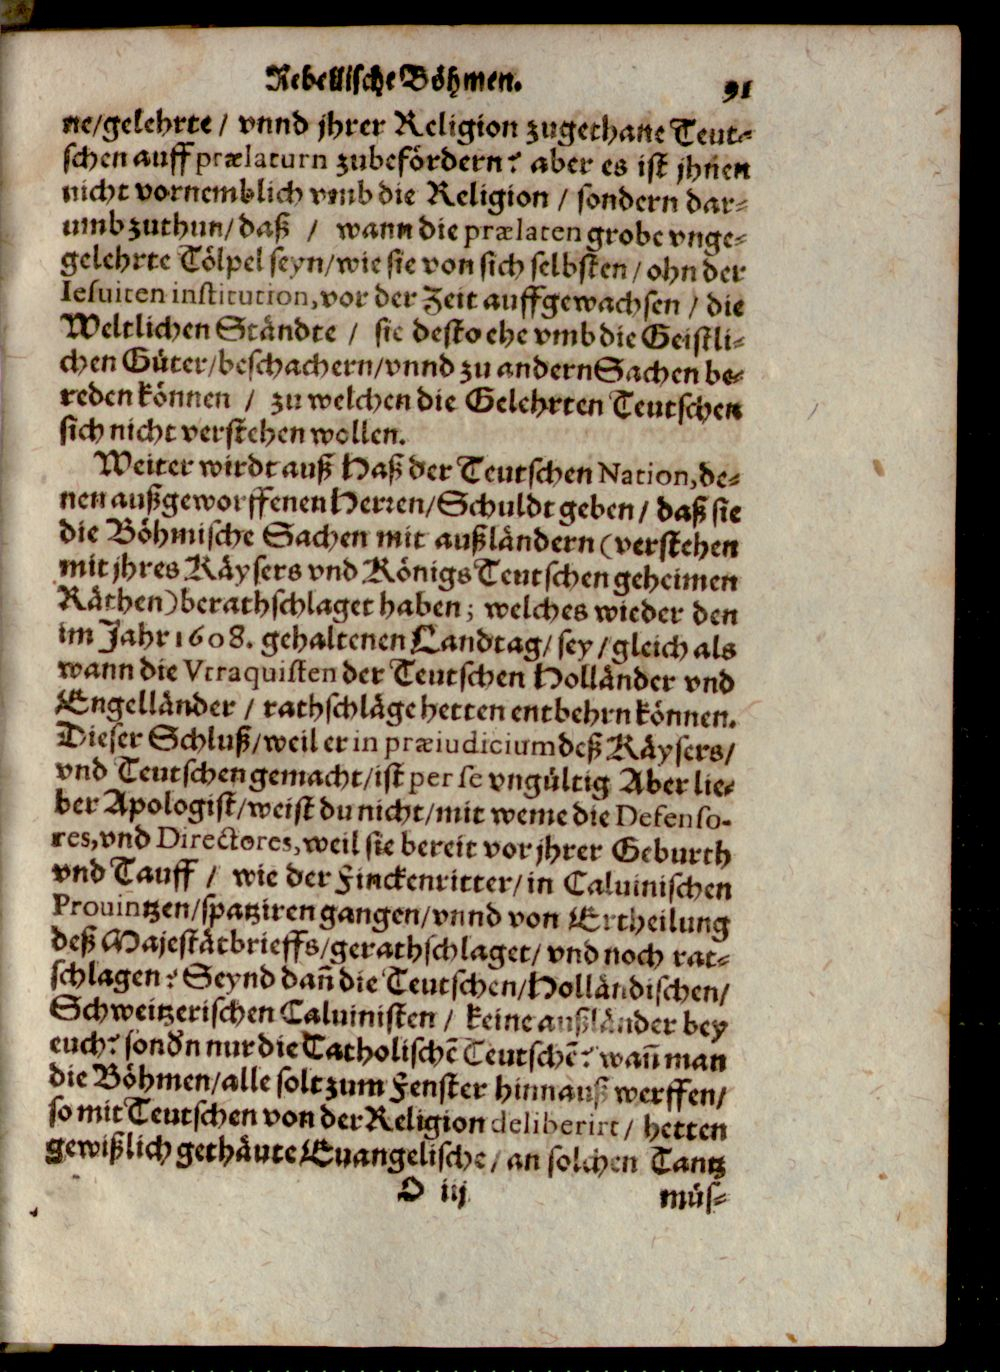 Rebellische Böhmen.
91
ne/gelehrte / vnnd jhrer Religion zugethane Teut-
schen auff prælaturn zubefördern? aber es ist jhnen
nicht vornemblich vmb die Religion / sondern dar-
umb zuthun/daß / wann die prælaten grobe vnge-
gelehrte Tölpel seyn/wie sie von sich selbsten/ohn der
Iesuiten institution,vor der Zeit auffgewachsen / die
Weltlichen Ständte / sie desto ehe vmb die Geistli-
chen Güter/beschachern/vnnd zu andern Sachen be-
reden können / zu welchen die Gelehrten Teutschen
sich nicht verstehen wollen.
Weiter wirdt auß Haß der Teutschen Nation,de-
nen außgeworffenen Herren/Schuldt geben/ daß sie
die Böhmische Sachen mit außländern (verstehen
mit jhres Käysers vnd Königs Teutschen geheimen
Räthen) berathschlaget haben; welches wieder den
im Jahr 1608. gehaltenen Landtag/sey/gleich als
wann die Vtraquisten der Teutschen Holländer vnd
Engelländer / rathschläge hetten entbehrn können.
Dieser Schluß/weil er in præiudicium deß Käysers/
vnd Teutschen gemacht/ist per se vngültig Aber lie-
ber Apologist/weist du nicht/mit weme die Defenso-
res,vnd Directores,weil sie bereit vor jhrer Geburth
vnd Tauff / wie der Finckenritter/in Caluinischen
Prouintzen/spatziren gangen/vnnd von Ertheilung
deß Majestätbrieffs/gerathschlaget/vnd noch rat-
schlagen? Seynd dañ die Teutschen/Holländischen/
Schweitzerischen Caluinisten / keine außländer bey
euch? sondn nur die Catholischẽ Teutschẽ? wañ man
die Böhmen/alle solt zum Fenster hinnauß werffen/
so mit Teutschen von der Religion deliberirt/ hetten
gewißlich gethäute Euangelische/an solchen Tantz
O iij
müs-